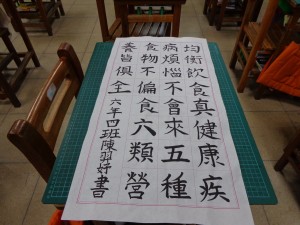 均衡飲食真健康疾
病煩惱不會來五種
食物不偏食六類營
養皆俱全
六年四班陳羿妤書